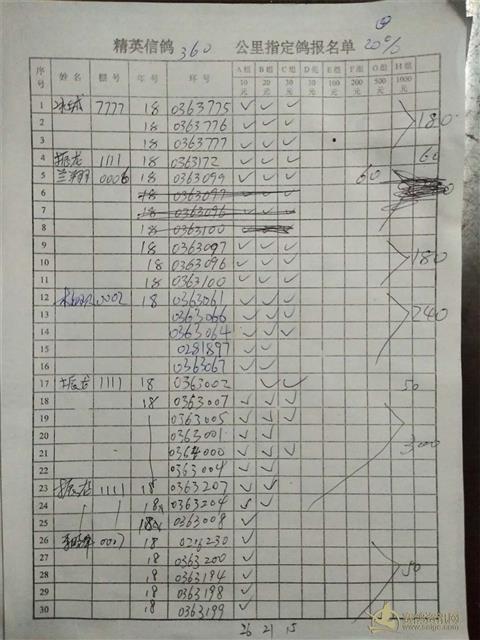 ④
精英信鸽 360 公里指定鸽报名单 20%
序号 姓名 棚号 年号 环号 A组10元 B组20元 C组30元 D组30元 E组100元 F组200元 G组500元 H组1000元
1 7777 18 0363775 ✓ ✓ ✓
2 18 0363776 ✓ ✓ ✓ 180
3 18 0363777 ✓ ✓ ✓
4 振龙 1111 18 0363172 ✓ ✓ ✓ 60
5 兰翔 0006 18 0363099 ✓ ✓ ✓ 60
6 18 0363097 ✓ ✓ ✓
7 18 0363096 ✓ ✓ ✓
8 18 0363100
9 18 0363097 ✓ ✓ ✓
10 18 0363096 ✓ ✓ ✓ 180
11 18 0363100 ✓ ✓ ✓
12 0002 18 0363061 ✓ ✓ ✓
13 0363066 ✓ ✓ ✓ 240
14 0363064 ✓ ✓ ✓
15 0281897 ✓ ✓
16 0363067 ✓ ✓
17 振龙 1111 18 0363002 ✓ ✓ 50
18 18 0363007 ✓ ✓ ✓
19 0363005 ✓ ✓ ✓
20 0363001 ✓ ✓
21 0364000 ✓ ✓ ✓ 300
22 0363004 ✓ ✓
23 振龙 1111 18 0363207 ✓ ✓
24 18 0363204 ✓ ✓
25 18 0363008 ✓
26 0007 18 0216230 ✓
27 18 0363200 ✓
28 18 0363194 ✓ 50
29 18 0363198 ✓
30 18 0363199 ✓
26 21 15